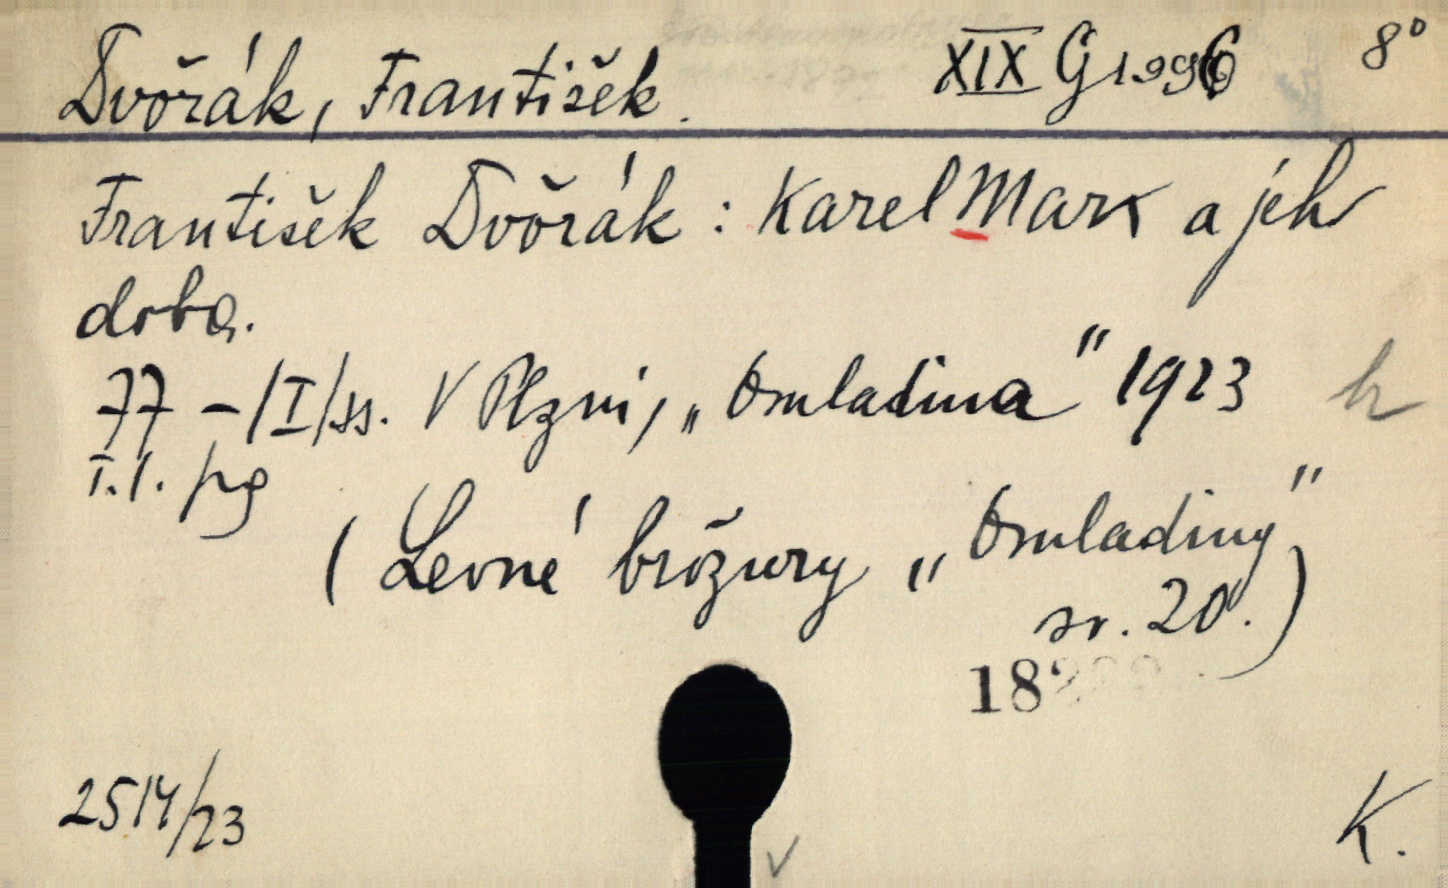 Dvořák, František. XIX G 1996 8°
František Dvořák: Karel Marx a jeho
doba.
77 - /I/ ss. V Plzni, „Omladina" 1923
T. 1. pg
(Levné brožury „Omladiny"
sv. 20.)
2514/23 K.